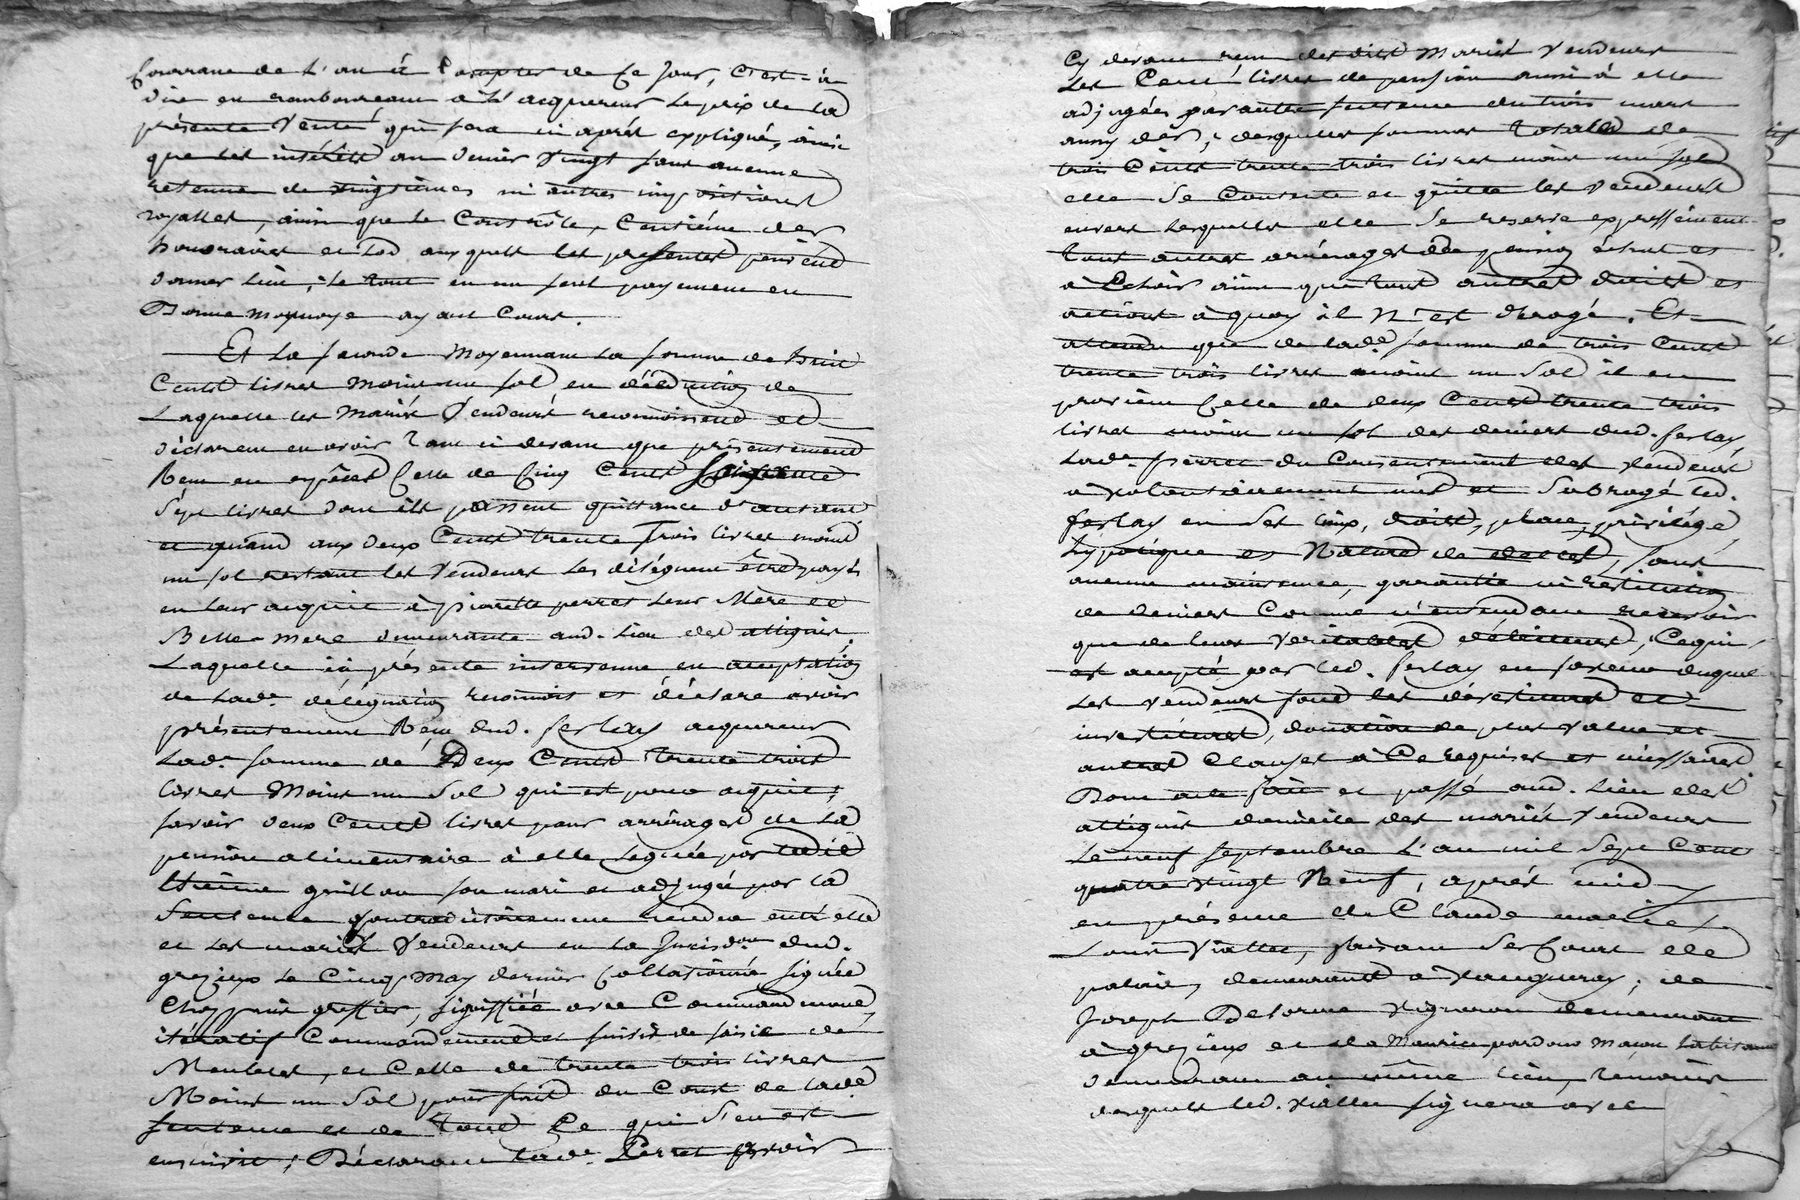 Courrane de L'an à Compter de Ce Jour, C'est-à
dire en remboursant à L'acquereur Le prix de La
présente Vente qui sera ci après expliqué, ainsi
que les intérêts au denier vingt sans aucune
retenue de vingtiemes ni autres impositions
royalles, ainsi que Le Controlle, Centiéme der
honoraires et Lod auxquels les presentes peuvent
donner Lieu, le tout en un seul payement en
Bonne monnoye ayant Cours.
Et La seconde Moyennant La somme de huit
Cents livres moins un sol en déduction de
Laquelle les Mariés Vendeurs reconnoissent et
déclarent en avoir tant ci devant que présentement
Reçu en espèces Celle de Cinq Cents Soixante
Sept livres dont ils passent quittance d'autant
et quand aux deux Cents trente Trois livres moins
un sol restant les Vendeurs Les déléguent être payés
en leur acquit à pierrette perret Leur Mere et
Belle-mere demeurante aud. Lieu des attignies.
Laquelle ici présente intervenue en acceptation
de Lade. délégation reconnoit et déclare avoir
présentement Reçu dud. ferlay acquereur
Lade. somme de Deux Cents trente trois
livres Moins un Sol qui est pour acquit;
savoir deux Cents livres pour arrérages de La
pension alimentaire à elle Leguée par
Etienne grillon son mari et adjugée par La
Sentence Contradictoirement rendue entr'elle
et Les mariés Vendeurs en La Jurisdon. dud.
grezieux Le Cinq May dernier Collationné signée
greffier, signiffiée avec Commandement
itératif Commandement et suivie de saisie de
Meubles, et Celle de trente trois livres
Moins un Sol pour frais du Cout de lade.
sentence et de tout Ce qui s'en est
ensuivit; Déclarant Lade. Perret avoir
Cy devant reçu desdits Mariés Vendeurs
Les Cent livres de pension aussi à elle
adjugées par autre sentence du trois mars
aussi der.; desquelles sommes totales de
trois Cents trente trois livres moins un sol
elle Se Contente et quitte les Vendeurs
envers Lesquels elle Se reserve expressément
tous autres arrérages de pension échus et
à Echoir ainsi que tous autres droits et
actions à quoy il N'est derogé. Et
attendu que de lade. somme de trois Cents
trente trois livres moins un Sol il en
provient Celle de deux Cents trente trois
livres moins un sol des deniers dud. ferlay,
Lade. perret du Consentement des Vendeurs
a volontairement mis et Subrogé led.
ferlay en Ses lieux, droits, place, privilége
hypotéque et Nature de dettes, sans
aucune maintenue, garantie ni restitution
de deniers Comme n'entendant recevoir
que de leurs Veritables débiteurs, Ce qui
est accepté par led. ferlay en faveur duquel
Les Vendeurs font les dévestitures et
investitures, donation de plus Value et
autres Clauses à Ce requises et nécessaires.
Dont acte fait et passé aud. Lieu des
attignies domicile des mariés Vendeurs
Le neuf Septembre L'an mil Sept Cent
quatre vingt Neuf, après midy
en présence de Claude marie
Louis Viallet, faisant Ses Cours de
palais, demeurant à Vaugneray, de
Joseph Delorme Vigneron demeurant
à grezieux et de Maurice pardon Maçon habitant
demeurant au même Lieu, temoins
desquels led. Viallet signera avec